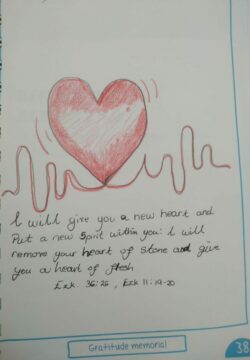 I will give you a new heart and
Put a new Spirit within you: I will
remove your heart of Stone and give
you a heart of flesh
Ezk. 36:26 , Ezk 11:19-20
Gratitude memorial
38